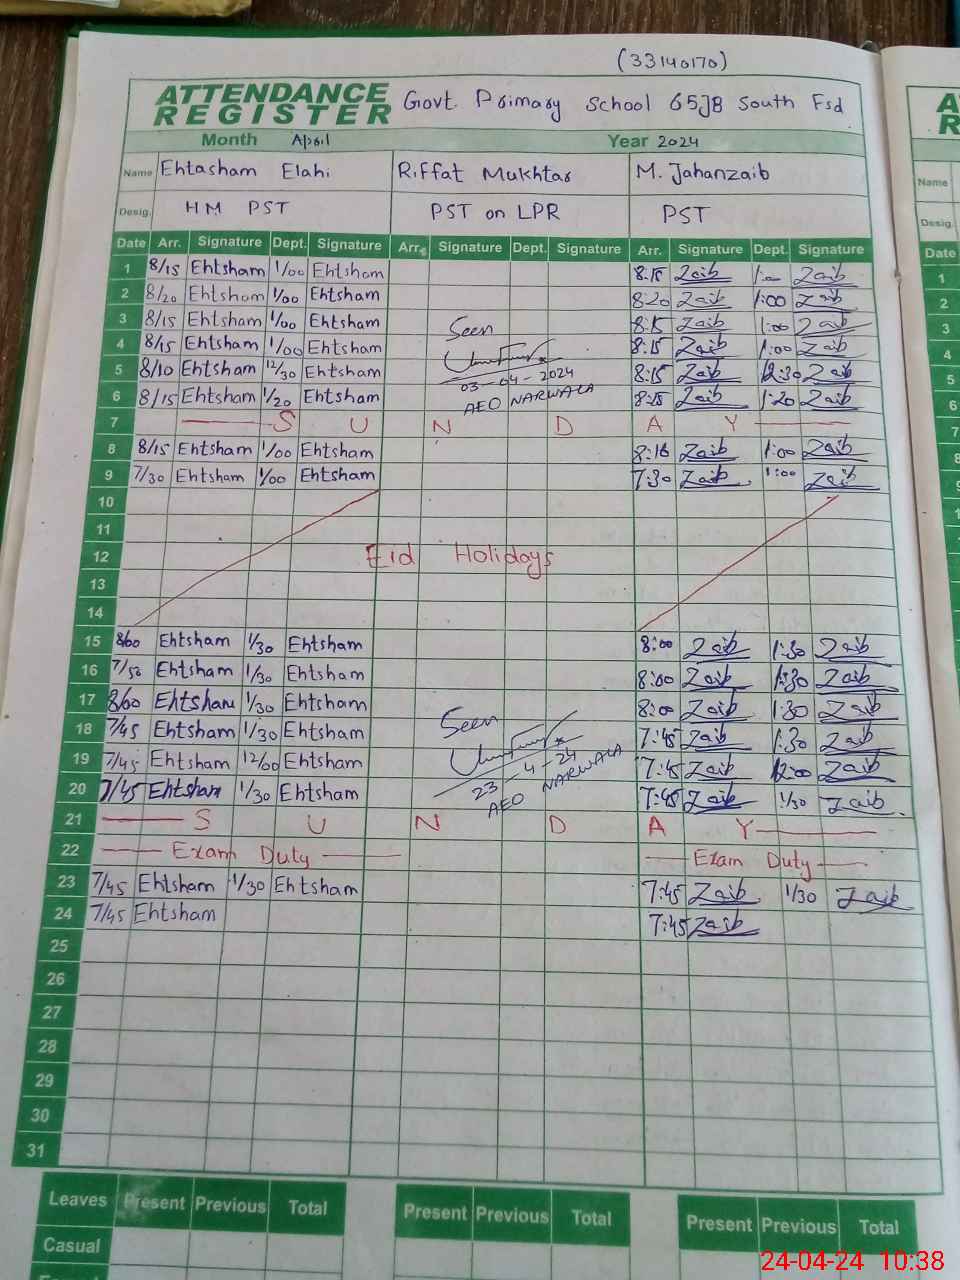 (33140170)
ATTENDANCE REGISTER Govt. Primary School 65JB South Fsd
Month April Year 2024
Name Ehtasham Elahi Riffat Mukhtar M. Jahanzaib
Desig. HM PST PST on LPR PST
Date Arr. Signature Dept. Signature Arr. Signature Dept. Signature Arr. Signature Dept. Signature
1 8/15 Ehtsham 1/00 Ehtsham 8:15 Zaib 1:00 Zaib
2 8/20 Ehtsham 1/00 Ehtsham 8:20 Zaib 1:00 Zaib
3 8/15 Ehtsham 1/00 Ehtsham Seen 8:15 Zaib 1:00 Zaib
4 8/15 Ehtsham 1/00 Ehtsham 8:15 Zaib 1:00 Zaib
5 8/10 Ehtsham 12/30 Ehtsham 03-04-2024 8:15 Zaib 12:30 Zaib
6 8/15 Ehtsham 1/20 Ehtsham AEO NARWALA 8:15 Zaib 1:20 Zaib
7 S U N D A Y
8 8/15 Ehtsham 1/00 Ehtsham 8:16 Zaib 1:00 Zaib
9 7/30 Ehtsham 1/00 Ehtsham 7:30 Zaib 1:00 Zaib
10
11
12 Eid Holidays
13
14
15 8/00 Ehtsham 1/30 Ehtsham 8:00 Zaib 1:30 Zaib
16 7/50 Ehtsham 1/30 Ehtsham 8:00 Zaib 1:30 Zaib
17 8/00 Ehtsham 1/30 Ehtsham 8:00 Zaib 1:30 Zaib
18 7/45 Ehtsham 1/30 Ehtsham Seen 7:45 Zaib 1:30 Zaib
19 7/45 Ehtsham 12/00 Ehtsham 23-4-24 7:45 Zaib 12:00 Zaib
20 7/45 Ehtsham 1/30 Ehtsham AEO NARWALA 7:45 Zaib 1/30 Zaib
21 S U N D A Y
22 Exam Duty Exam Duty
23 7/45 Ehtsham 1/30 Ehtsham 7:45 Zaib 1/30 Zaib
24 7/45 Ehtsham 7:45 Zaib
25
26
27
28
29
30
31
Leaves Present Previous Total Present Previous Total Present Previous Total
Casual
24-04-24 10:38
A
R
Name
Desig.
Date
1
2
3
4
5
6
7
8